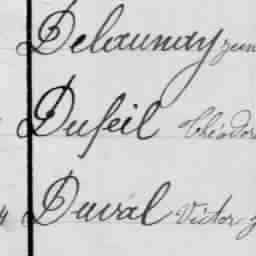 Delaunay
Dufeil Théodor
Duval Victor